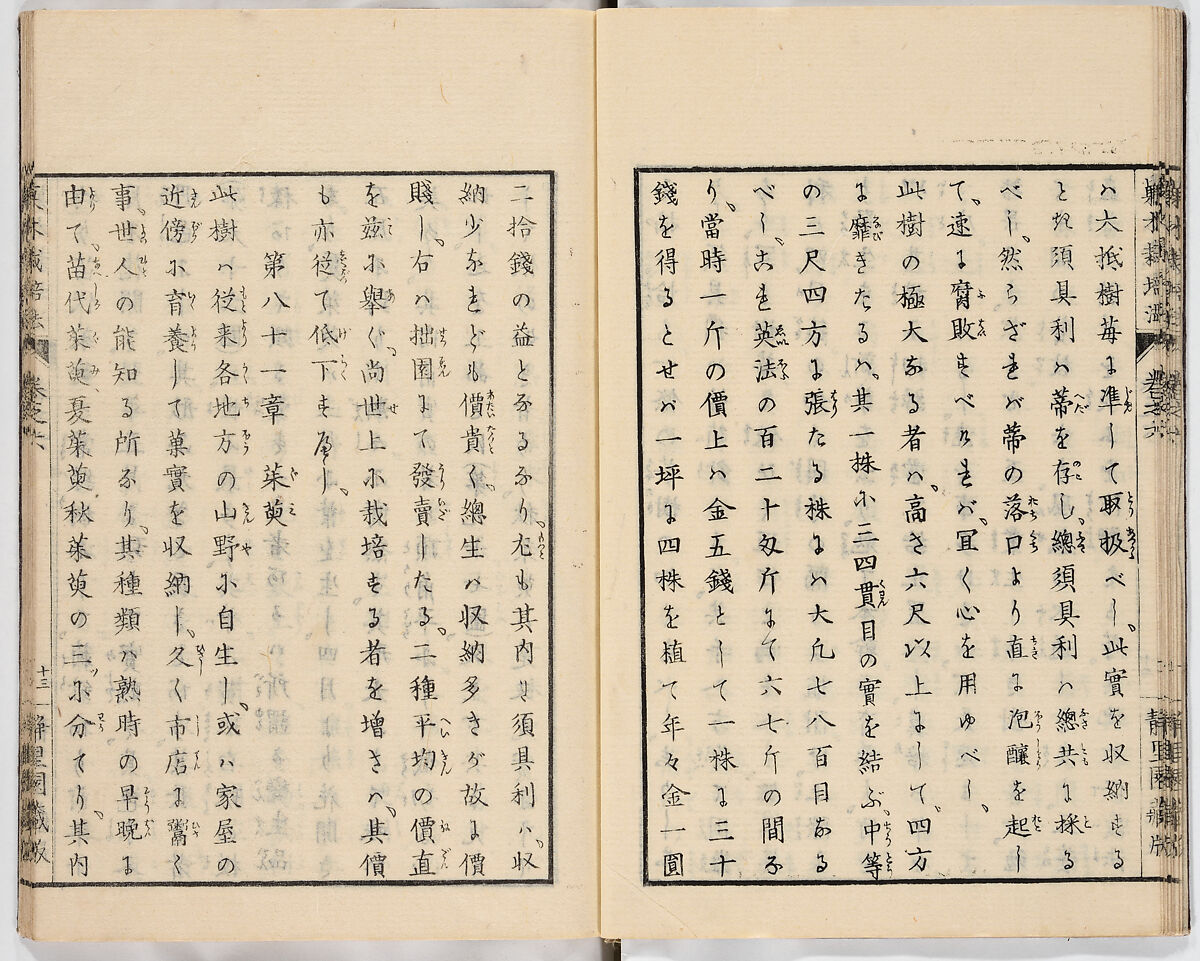 ハ大抵樹毎に準して取扱べし、此實を収納する
とき須具利ハ蒂を存し、總須具利ハ總共に採る
べし、然らざれバ蒂の落口より直に泡釀を起し
て、速に腐敗すべけれバ、冝く心を用ゆべし、
此樹の極大なる者ハ、高さ六尺以上にして、四方
に靡きたるハ、其一株に三四貫目の實を結ぶ、中等
の三尺四方に張たる株にハ大凢七八百目なる
べし、これ英法の百二十匁斤にて六七斤の間な
り、當時一斤の價上ハ金五錢として一株に三十
錢を得るとせバ一坪に四株を植て年々金一圓
二拾錢の益となるなり、尤も其内に須具利ハ、収
納少なれども價貴く、總生ハ収納多きが故に價
賤し、右ハ拙園にて發賣したる、二種平均の價直
を茲に舉ぐ、尚世上に栽培する者を増さバ、其價
も亦従て低下すべし、
第八十一章 茱萸
此樹ハ従来各地方の山野に自生し、或ハ家屋の
近傍に育養して菓實を収納し、久く市店に鬻ぐ
事、世人の能知る所なり、其種類ハ熟時の早晩に
由て、苗代茱萸夏茱萸秋茱萸の三ツに分てり、其内
卷之六
十三